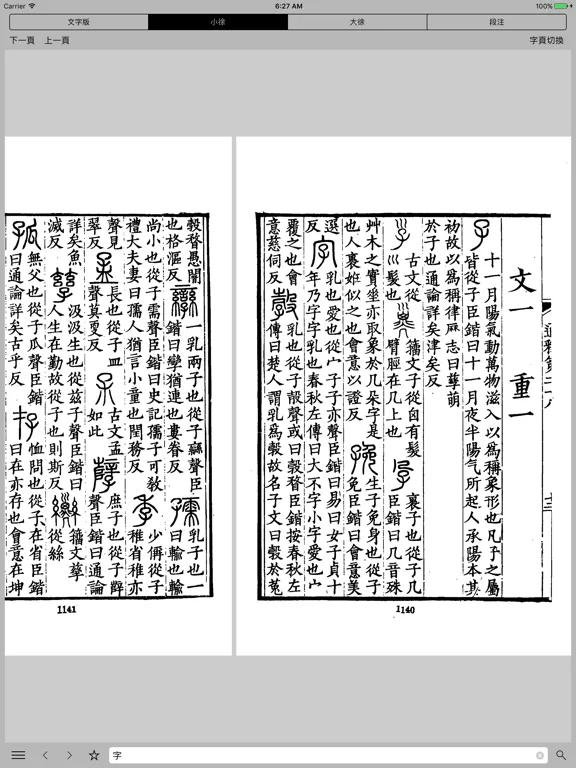 Carrier 6:27 AM 100%
文字版 小徐 大徐 段注
下一頁 上一頁 字頁切換
通釋第二十八 十三
文一 重一
子 十一月陽氣動萬物滋入以爲稱象形也凡子之屬
皆從子臣鍇曰十一月夜半陽氣所起人承陽本其
初故以爲稱律曆志曰孳萌
於子也通論詳矣津矣反
古文從巛髮也 籀文子從囟有髮
臂脛在几上也
孕 裹子也從子几
臣鍇曰几音殊
艸木之實坐亦取象於几朵字是
也人裹姙似之也會意以證反
㝃 生子免身也從子
免臣鍇曰會意美
選反
字 乳也愛也從宀子子亦聲臣鍇曰易曰女子貞十
年乃字字乳也春秋左傳曰大不字小字愛也宀
覆之也會意慈伺反
㲉 乳也從子㱿聲或曰㲉瞀臣鍇按春秋左
傳曰楚人謂乳爲㲉故名子文曰㲉於菟
1140
㲉瞀愚闇
也格漚反
孿 一乳兩子也從子䜌聲臣
鍇曰孿猶連也婁眷反
孺 乳子也一
曰輸也輸
尚小也從子需聲臣鍇曰史記孺子可教
禮大夫妻曰孺人猶言小童也閏務反
季 少偁從子
稚省稚亦
聲見
翠反
孟 長也從子皿
聲莫更反
古文孟
如此
孼 庶子也從子辥
聲臣鍇曰通論
詳矣魚
滅反
孳 汲汲生也從子兹聲臣鍇曰
人生在勤故從子也則斯反
籀文孳
從絲
孤 無父也從子瓜聲臣鍇
曰通論詳矣古乎反
存 恤問也從子在省臣鍇
曰在亦存也會意在坤
1141
字